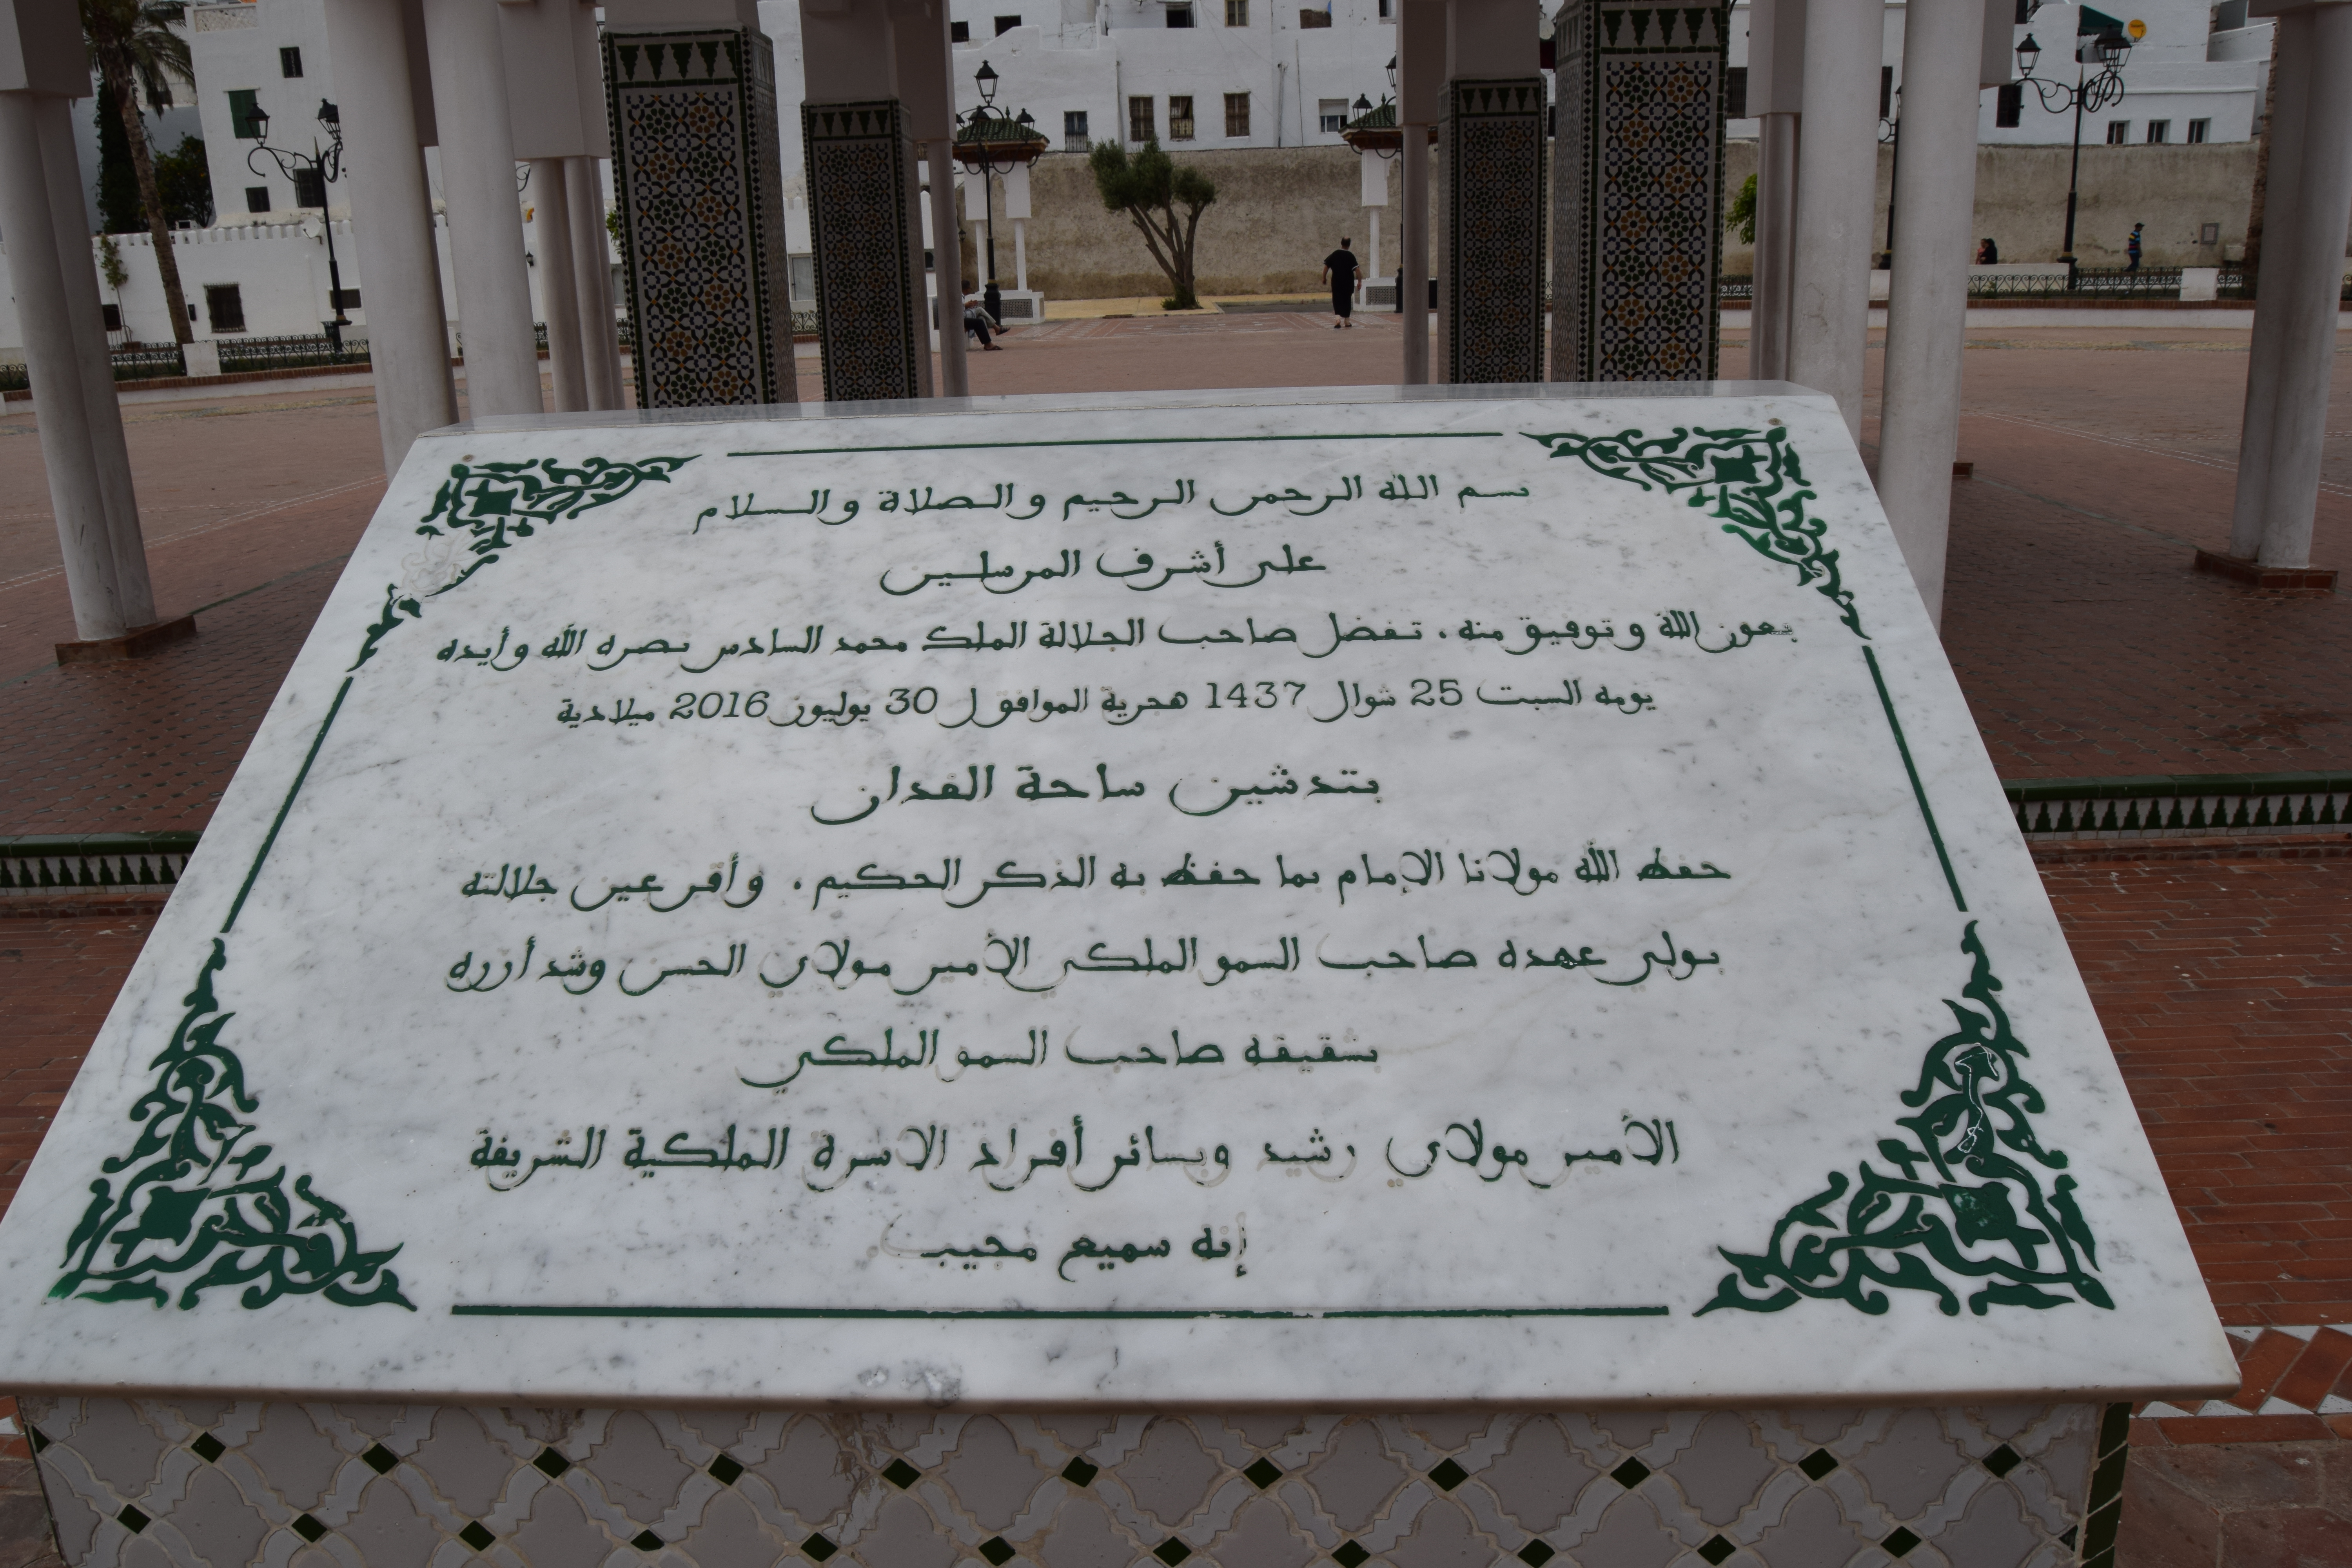 بسم الله الرحمن الرحيم والصلاة والسلام
على أشرف المرسلين
بعون الله وتوفيق منه، تفضل صاحب الجلالة الملك محمد السادس نصره الله وأيده
يومه السبت 25 شوال 1437 هجرية الموافق ل 30 يوليوز 2016 ميلادية
بتدشين ساحة الفدان
حفظ الله مولانا الإمام بما حفظ به الذكر الحكيم، وأقر عين جلالته
بولي عهده صاحب السمو الملكي الأمير مولاي الحسن وشد أزره
بشقيقه صاحب السمو الملكي
الأمير مولاي رشيد وبسائر أفراد الاسرة الملكية الشريفة
إنه سميع مجيب.